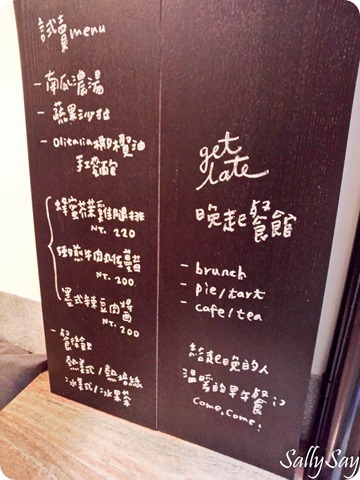 試賣menu
- 南瓜濃湯
- 蔬果沙拉
- Olitalia橄欖油
手工麵包
蜂蜜芥茉雞腿排
NT. 220
NT. 200
墨式辣豆肉醬
NT. 200
- 餐後飲
熱美式/熱焙綠
冰美式/冰果茶
get
late
晚起餐館
- brunch
- pie/tart
- cafe/tea
給起晚的人
溫暖的早午餐
Come, Come!
SallySay